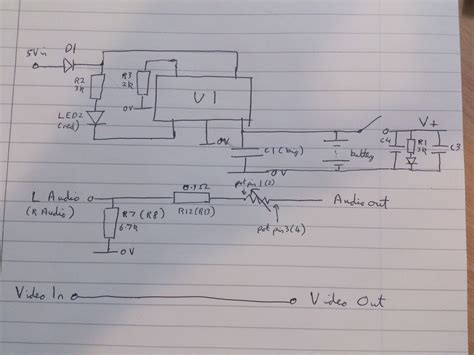 5V in
D1
R2
3k
R3
2k
U1
LED2
(red)
0V
0V
C1 (big)
0V
battery
V+
C4
R1
3k
C3
L Audio
(R Audio)
R7 (R8)
6.7k
0V
R12 (R13)
pot pin 1 (2)
pot pin 3 (4)
Audio out
Video In
Video Out